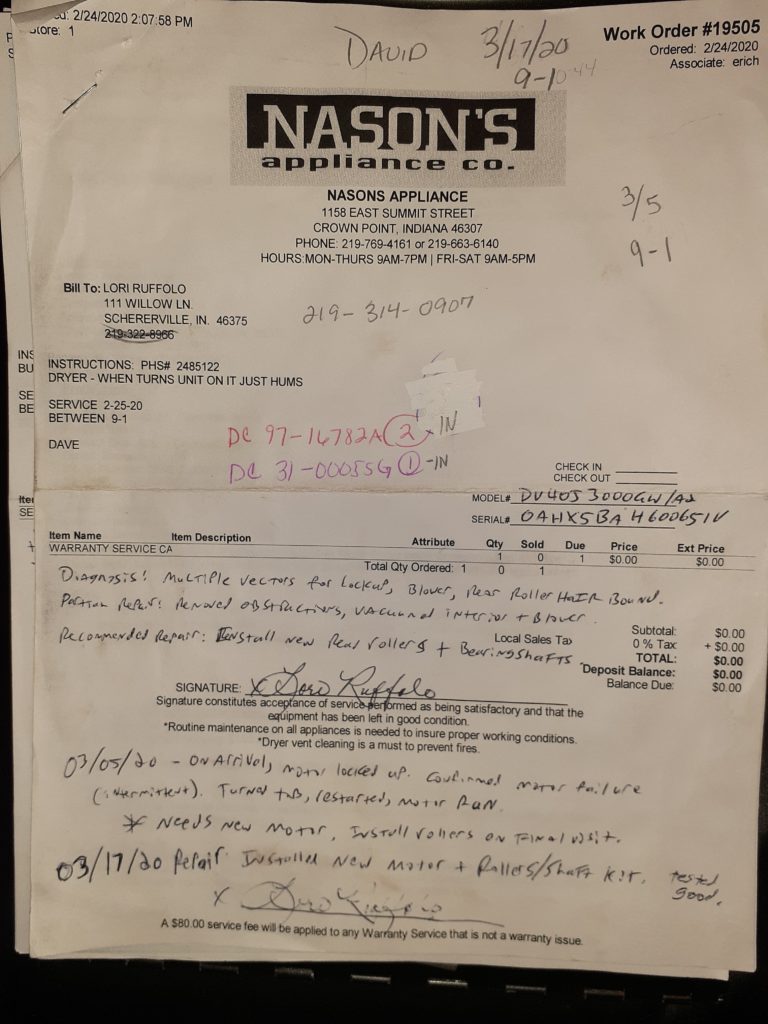 2/24/2020 2:07:58 PM
Store: 1
DAVID
3/17/20
9-1
Work Order #19505
Ordered: 2/24/2020
Associate: erich
NASON'S
appliance co.
NASONS APPLIANCE
1158 EAST SUMMIT STREET
CROWN POINT, INDIANA 46307
PHONE: 219-769-4161 or 219-663-6140
HOURS:MON-THURS 9AM-7PM | FRI-SAT 9AM-5PM
3/5
9-1
Bill To: LORI RUFFOLO
111 WILLOW LN.
SCHERERVILLE, IN. 46375
219-322-8966
219-314-0907
INSTRUCTIONS: PHS# 2485122
DRYER - WHEN TURNS UNIT ON IT JUST HUMS
SERVICE 2-25-20
BETWEEN 9-1
DAVE
DC 97-16782A (2) x IN
DC 31-00055G (1) -IN
CHECK IN
CHECK OUT
MODEL# DV405 3000GW/A2
SERIAL# 0AHX5BAH600651V
Item Name Item Description Attribute Qty Sold Due Price Ext Price
WARRANTY SERVICE CA 1 0 1 $0.00 $0.00
Total Qty Ordered: 1 0 1
Diagnosis: Multiple vectors for Lockup, Blower, Rear Roller HAIR Bound.
Partial Repair: Removed obstructions, vacuumed interior + Blower.
Recommended Repair: Install new Rear rollers + Bearing Shafts.
Subtotal: $0.00
Local Sales Tax 0 % Tax: + $0.00
TOTAL: $0.00
Deposit Balance: $0.00
Balance Due: $0.00
SIGNATURE: x Lori Ruffolo
Signature constitutes acceptance of service performed as being satisfactory and that the
equipment has been left in good condition.
*Routine maintenance on all appliances is needed to insure proper working conditions.
*Dryer vent cleaning is a must to prevent fires.
03/05/20 - On Arrival, motor locked up. Confirmed motor failure
(intermittent). Turned restarted, motor RAN.
* Needs New Motor, Install rollers on Final visit.
03/17/20 Repair Installed New Motor + Rollers/Shaft Kit. tested
good.
x Lori Ruffolo
A $80.00 service fee will be applied to any Warranty Service that is not a warranty issue.